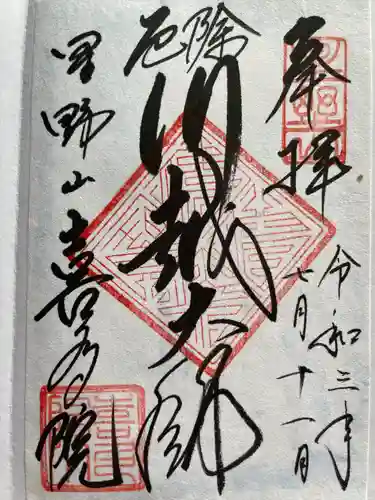 奉拝
令和三年
七月十一日
厄除
川越大師
星野山
喜多院